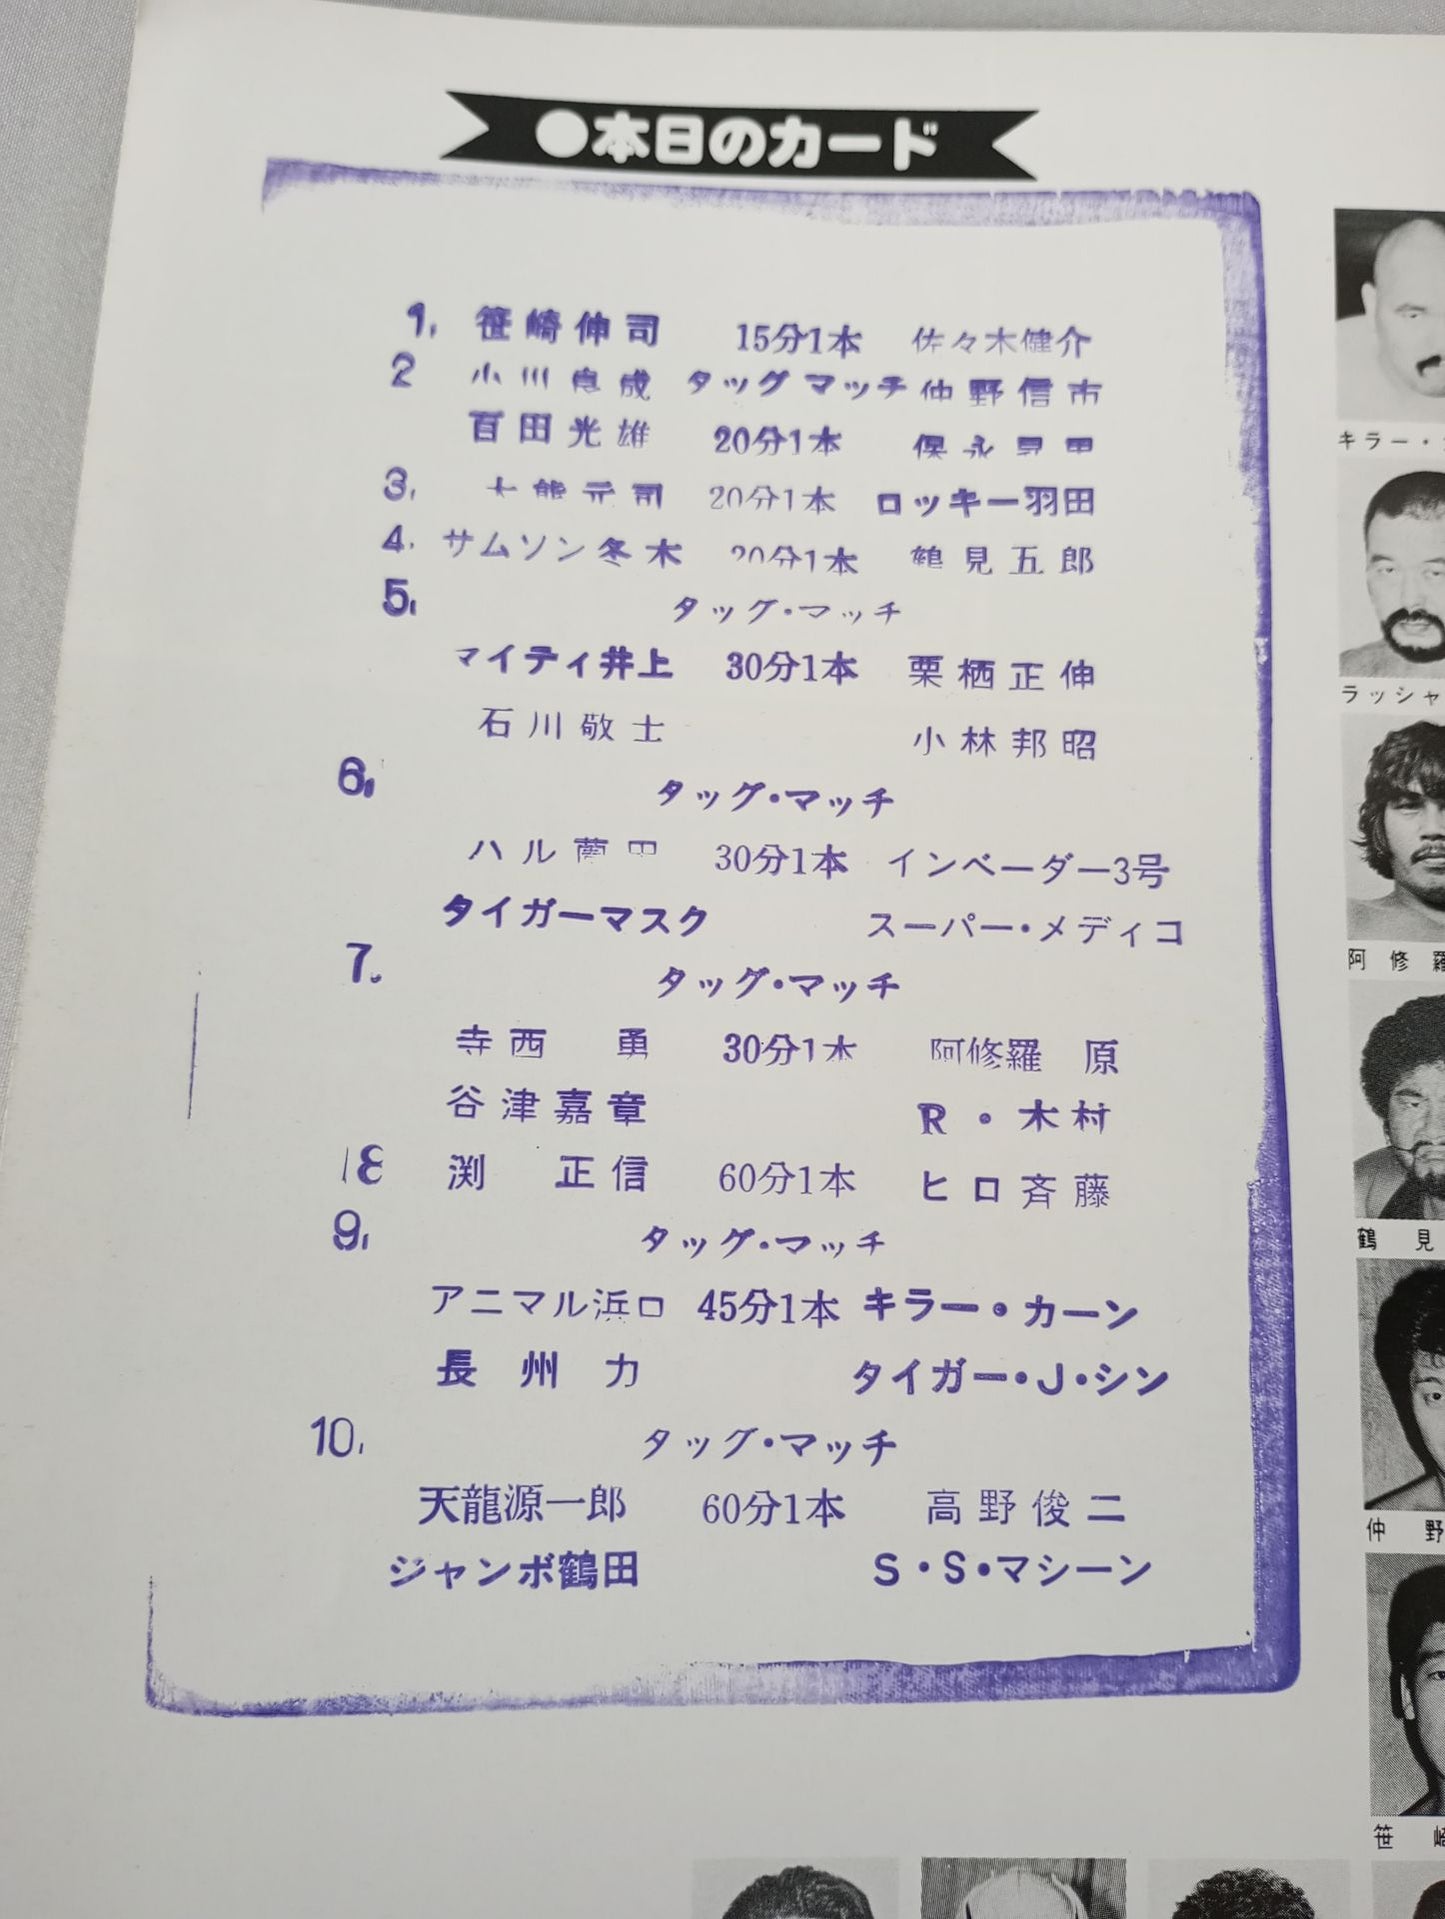 ●本日のカード
1, 笹崎伸司 15分1本 佐々木健介
2 小川良成 タッグマッチ 仲野信市
百田光雄 20分1本 保永昇男
3, 大熊元司 20分1本 ロッキー羽田
4. サムソン冬木 20分1本 鶴見五郎
5, タッグ・マッチ
マイティ井上 30分1本 栗栖正伸
石川敬士 小林邦昭
6, タッグ・マッチ
ハル薗田 30分1本 インベーダー3号
タイガーマスク スーパー・メディコ
7. タッグ・マッチ
寺西 勇 30分1本 阿修羅 原
谷津嘉章 R・木村
8 渕 正信 60分1本 ヒロ斉藤
9, タッグ・マッチ
アニマル浜口 45分1本 キラー・カーン
長州 力 タイガー・J・シン
10, タッグ・マッチ
天龍源一郎 60分1本 高野俊二
ジャンボ鶴田 S・S・マシーン
キラー・
ラッシャ
阿修羅
鶴見
仲野
笹崎